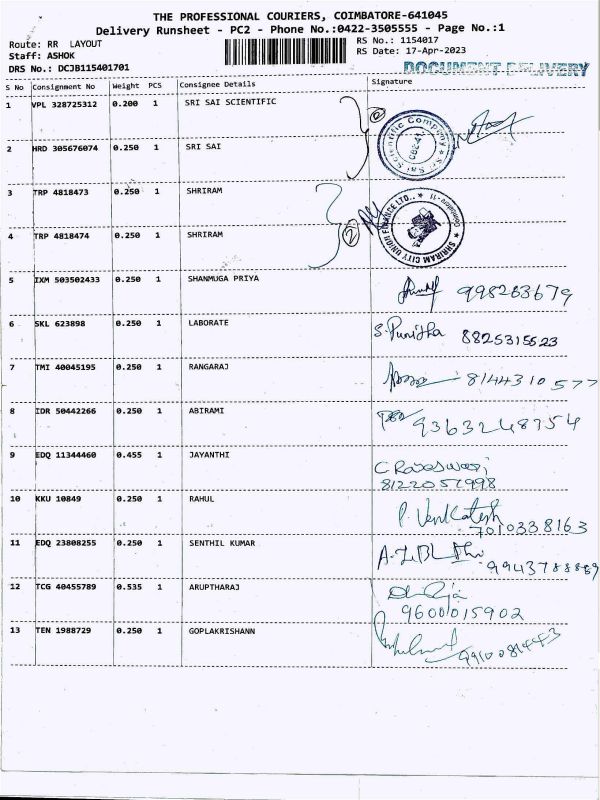 THE PROFESSIONAL COURIERS, COIMBATORE-641045
Delivery Runsheet - PC2 - Phone No.:0422-3505555 - Page No.:1
Route: RR LAYOUT
RS No.: 1154017
Staff: ASHOK
RS Date: 17-Apr-2023
DRS No.: DCJB115401701
DOCUMENT DELIVERY
S No Consignment No Weight PCS Consignee Details Signature
1 VPL 328725312 0.200 1 SRI SAI SCIENTIFIC
Sri Sai Scientific Company
2 HRD 305676074 0.250 1 SRI SAI
3 TRP 4818473 0.250 1 SHRIRAM
SHRIRAM CITY UNION FINANCE LTD.,
Coimbatore - 11
2
4 TRP 4818474 0.250 1 SHRIRAM
5 IXM 503502433 0.250 1 SHANMUGA PRIYA 998263679
6 SKL 623898 0.250 1 LABORATE S. Punitha 8825315523
7 TMI 40045195 0.250 1 RANGARAJ 8144310577
8 IDR 50442266 0.250 1 ABIRAMI 9363248754
9 EDQ 11344460 0.455 1 JAYANTHI C Rajeswari
8122057998
10 KKU 10849 0.250 1 RAHUL P. Venkatesh
7010338163
11 EDQ 23808255 0.250 1 SENTHIL KUMAR 9943788889
12 TCG 40455789 0.535 1 ARUPTHARAJ
9600015902
13 TEN 1988729 0.250 1 GOPLAKRISHANN